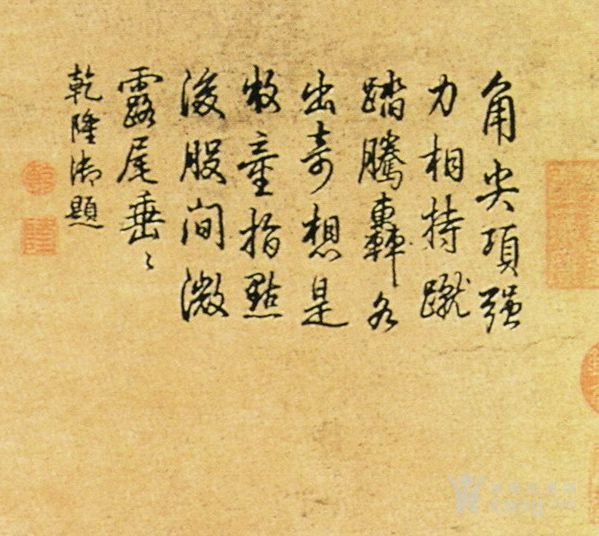 角尖項强
力相持蹴
踏騰轟各
出奇想是
牧童指點
後股間微
露尾垂〻
乾隆御題